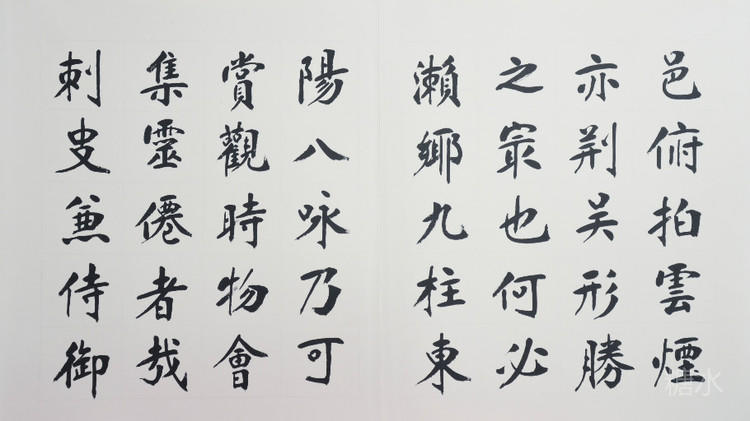 邑俯拍雲煙
亦荆吴形勝
之冣也何必
瀨鄉九柱東
陽八咏乃可
賞觀時物會
集靈僊者哉
刺史兼侍御
糖水